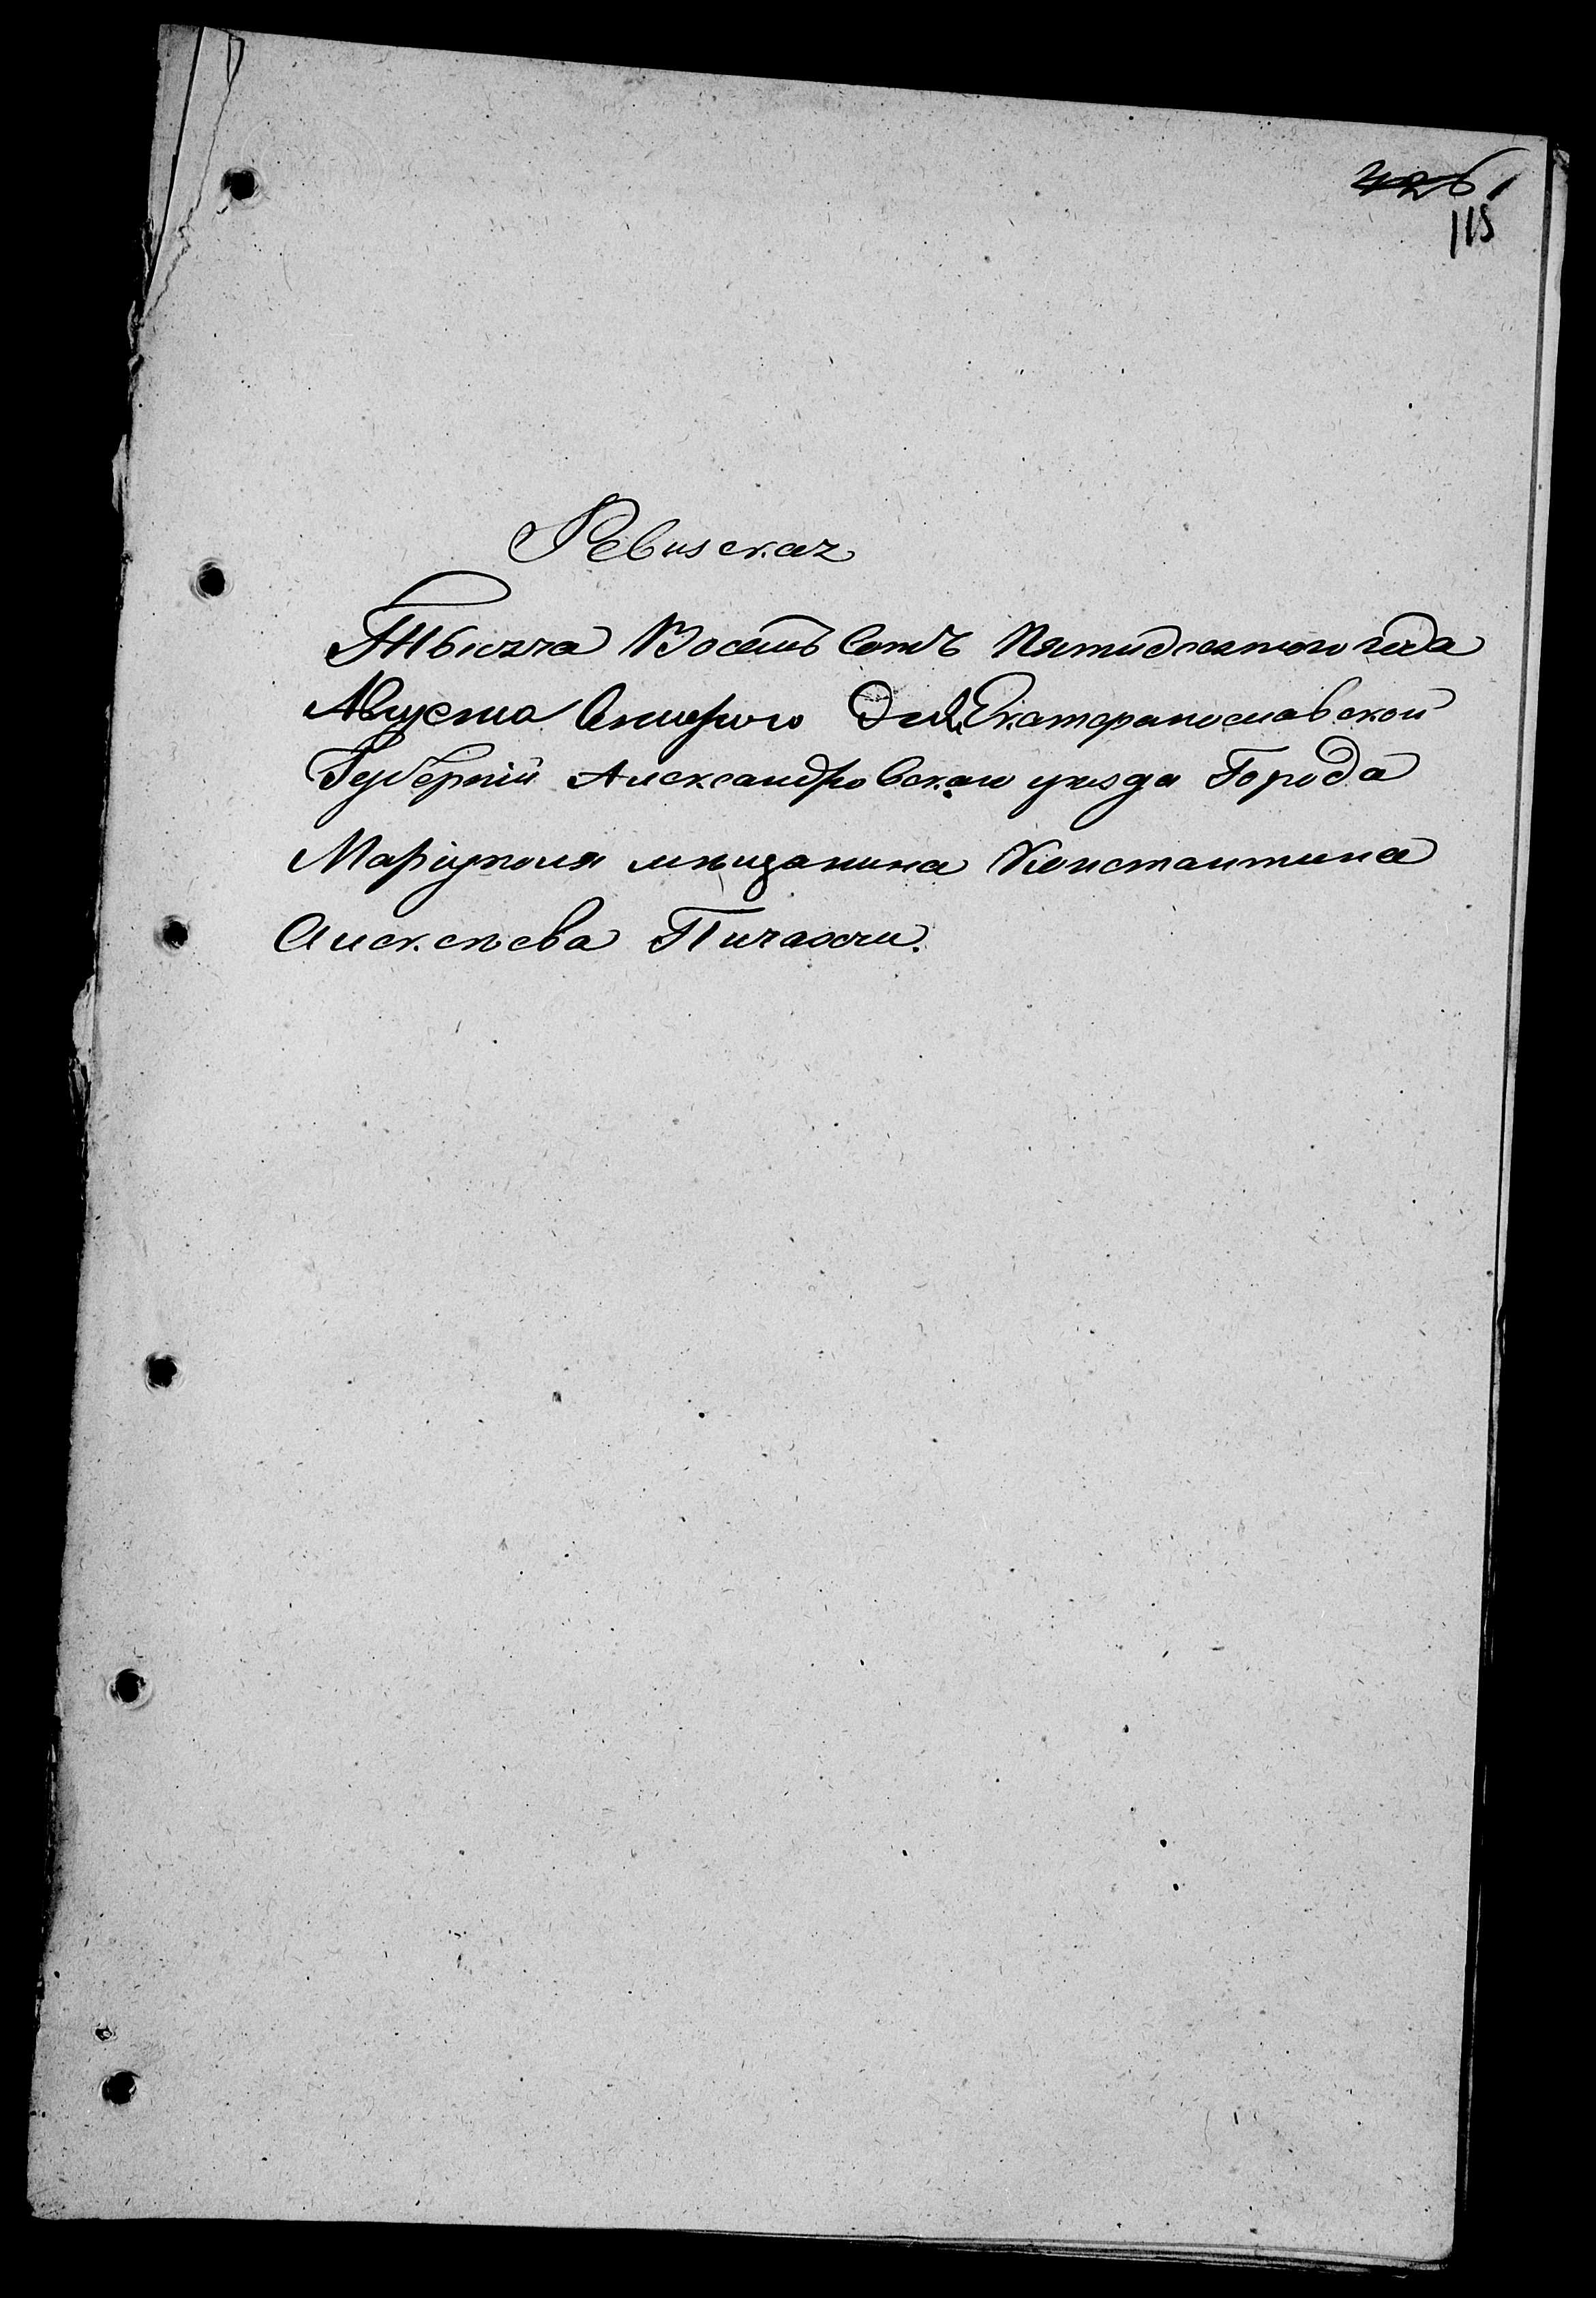 426
115
Ревизсказ
Тысяча Восемь Сотъ Пятидесятого года
Августа Второго Дня Екатеринославской
Губерніи Александровскаго уезда Города
Маріуполя мещанина Константина
Алексеева Пичахчи.